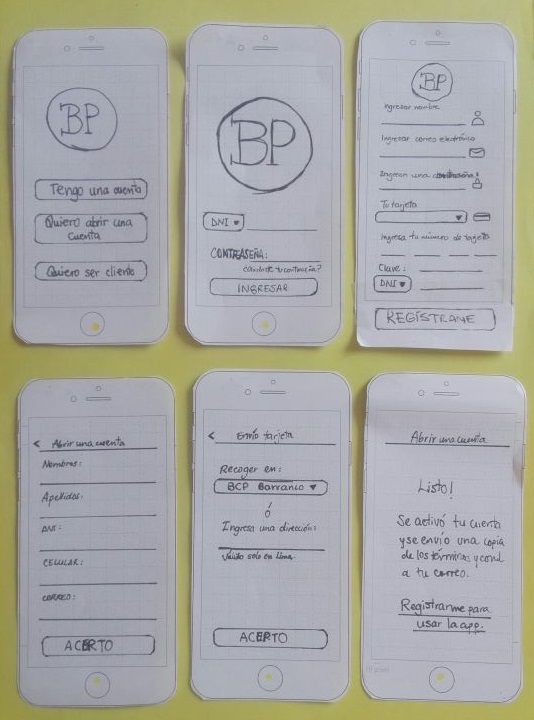 BP
Tengo una cuenta
Quiero abrir una
cuenta
Quiero ser cliente
BP
DNI
CONTRASEÑA:
INGRESAR
BP
Ingresar nombre
Ingresar correo electrónico
Ingresa una
Tu tarjeta
Ingresa tu número de tarjeta
Clave:
DNI
REGÍSTRAME
< Abrir una cuenta
Nombres:
Apellidos:
DNI:
CELULAR:
CORREO:
ACEPTO
< Envío tarjeta
Recoger en:
BCP Barranco
ó
Ingresa una dirección:
Válido solo en Lima.
ACEPTO
Abrir una cuenta
Listo!
Se activó tu cuenta
y se envío una copia
de los términos y cond
a tu correo.
Registrarme para
usar la app.